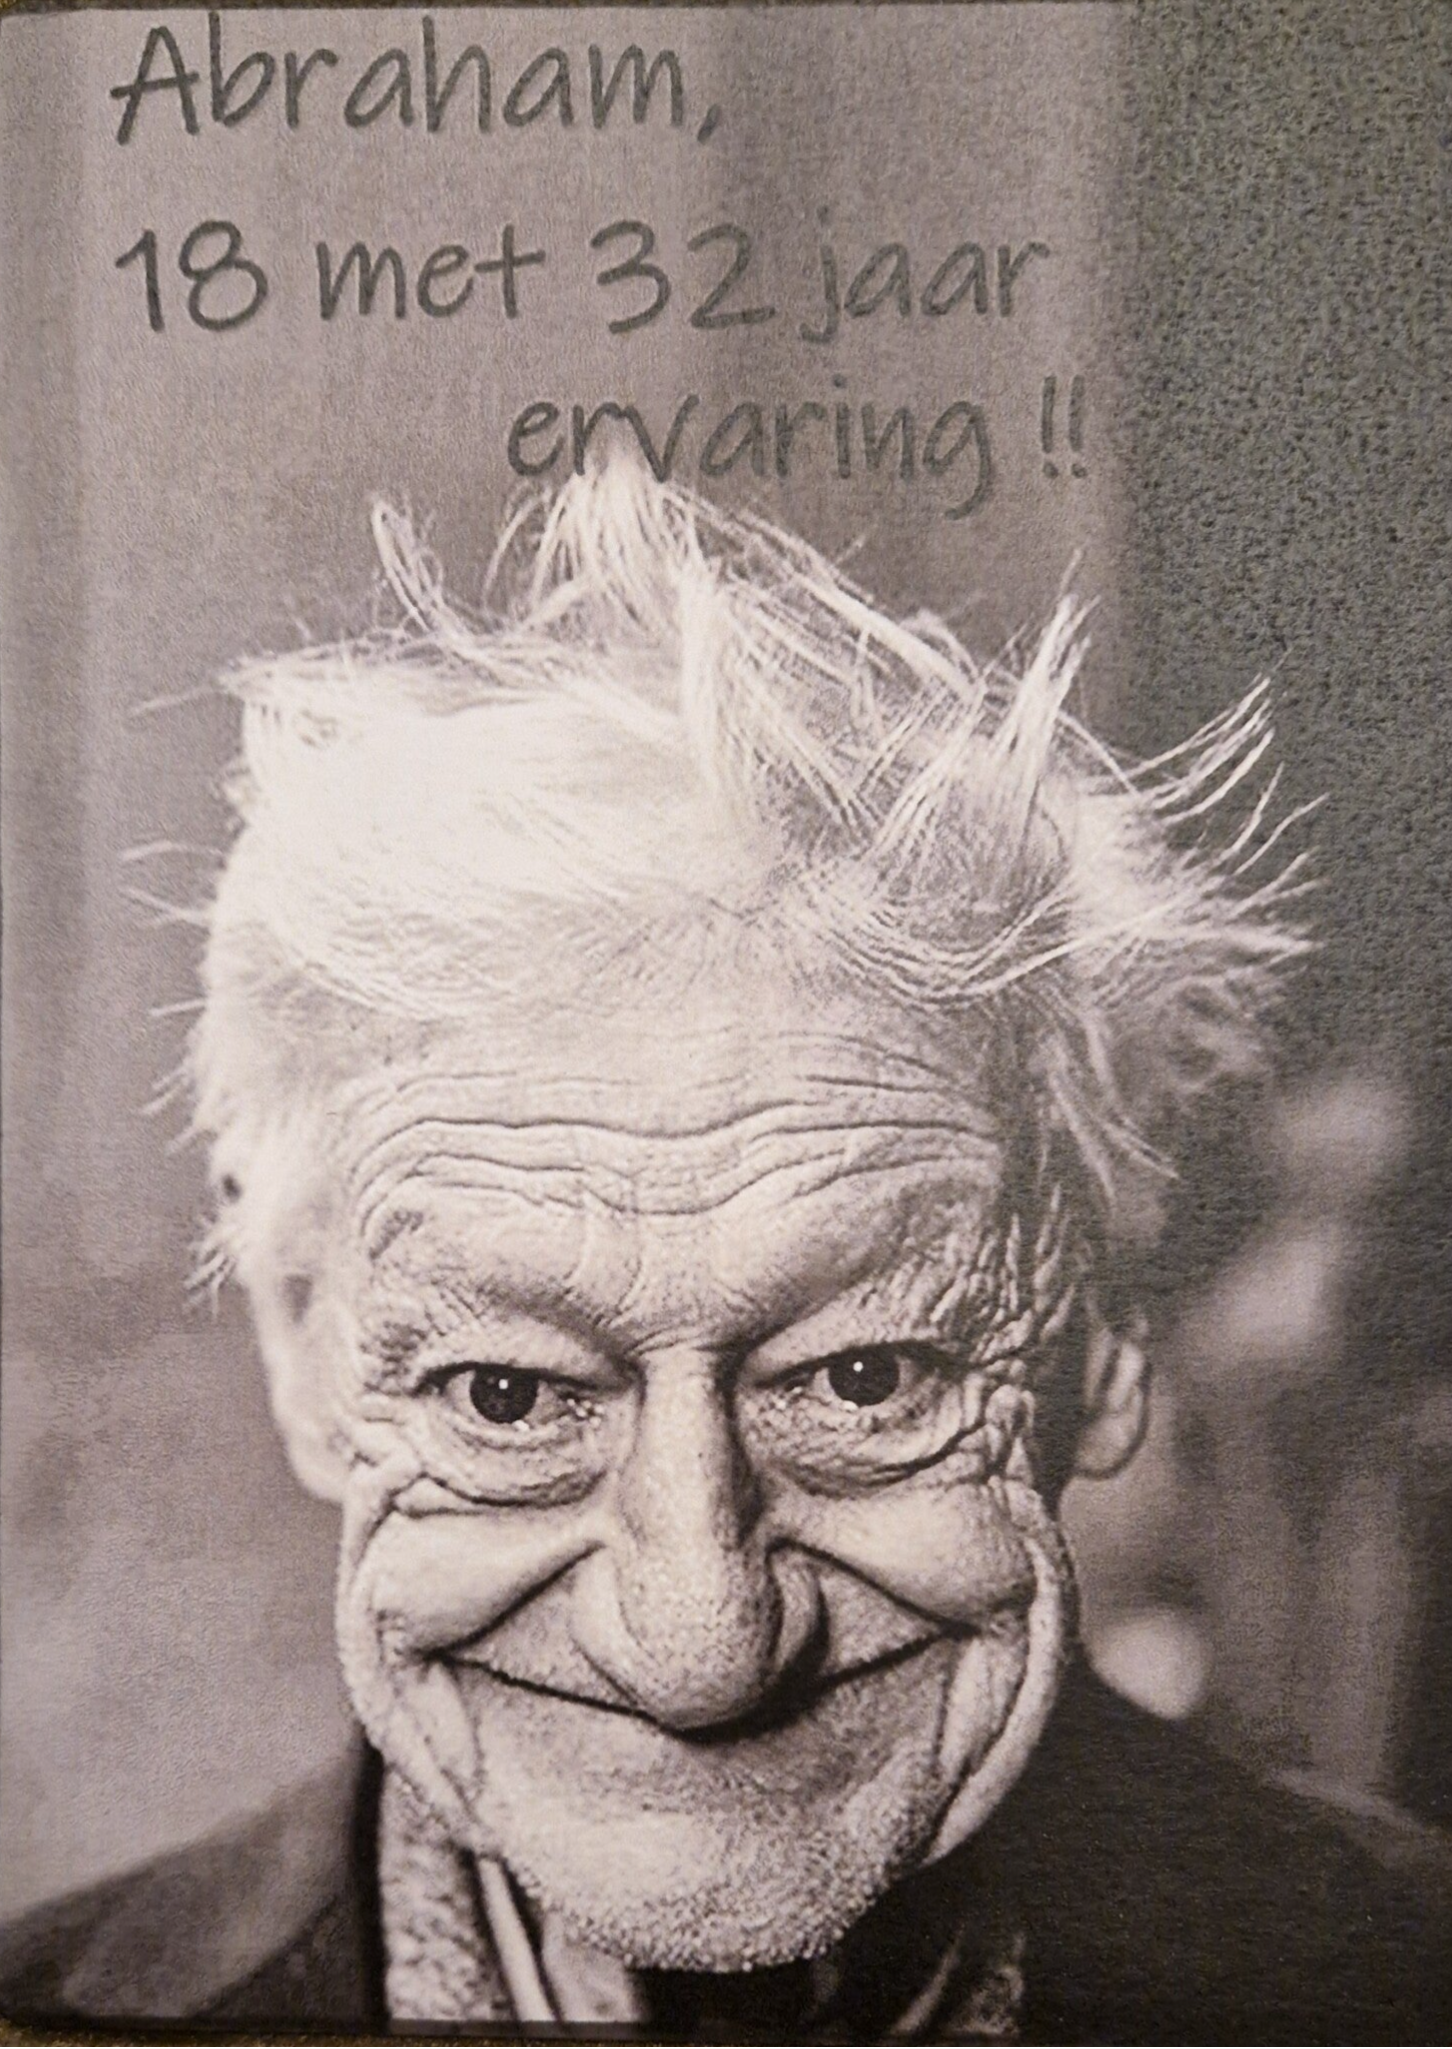 Abraham,
18 met 32 jaar
ervaring !!